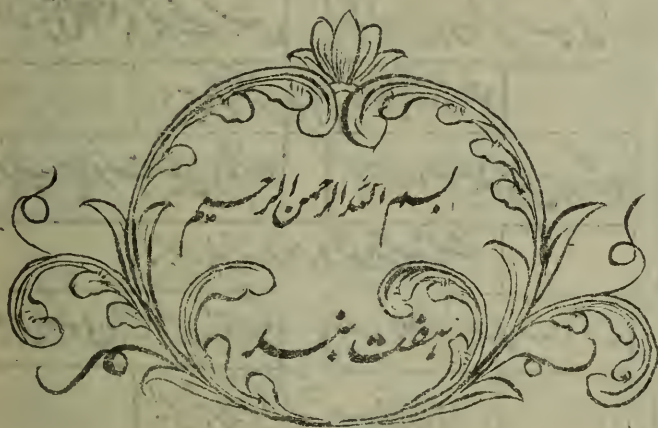 بسم اللہ الرحمن الرحیم
ہفت بند